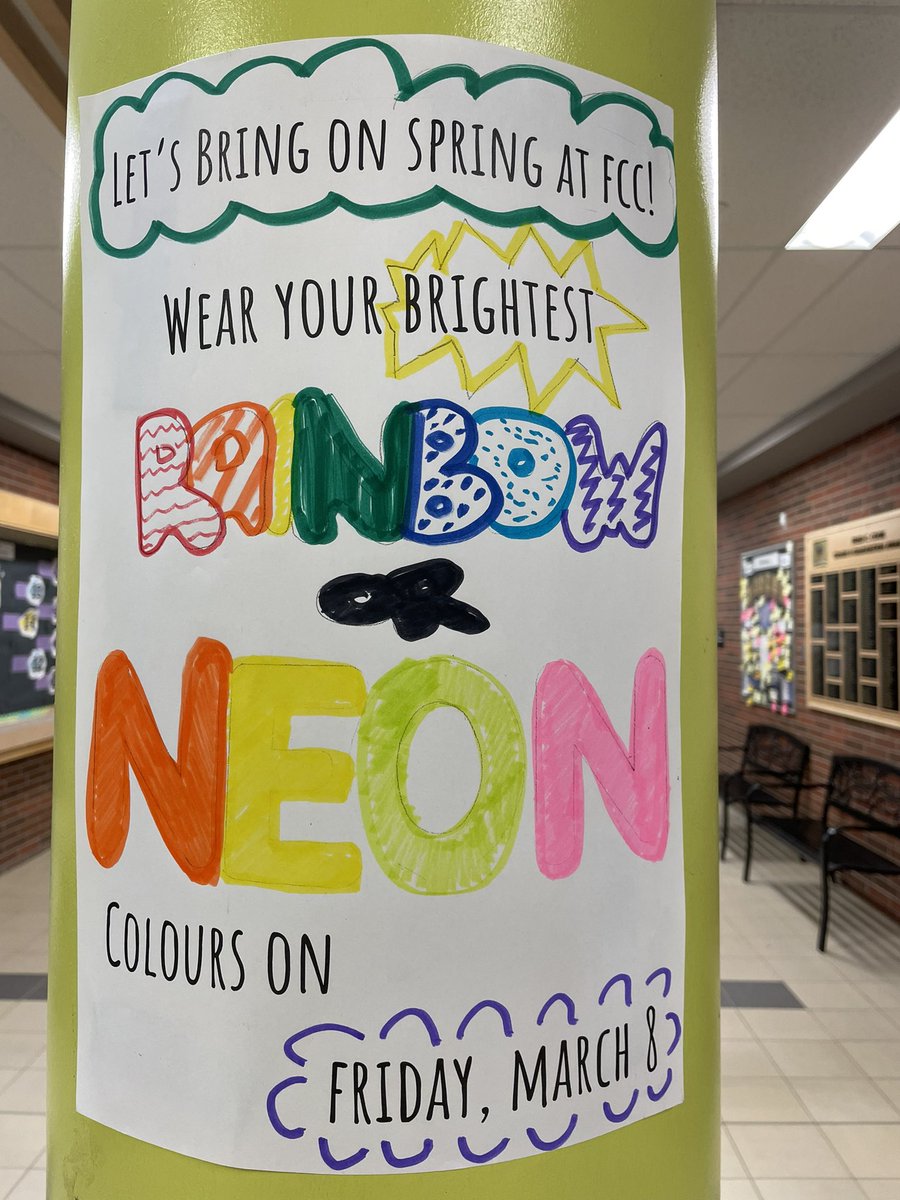 LET'S BRING ON SPRING AT FCC!
WEAR YOUR BRIGHTEST
RAINBOW
OR
NEON
COLOURS ON
FRIDAY, MARCH 8